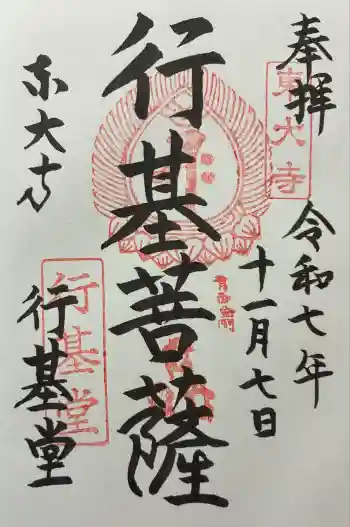 奉拝
東大寺
令和七年
十一月七日
行基菩薩
東大寺
行基堂
行基堂